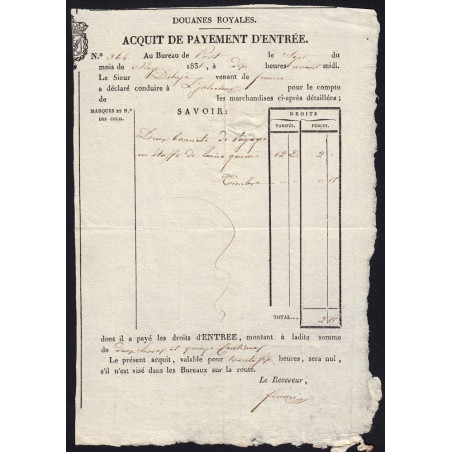 DOUANES ROYALES.
ACQUIT DE PAYEMENT D'ENTRÉE.
N.º 364 Au Bureau de Pont le Sept du
mois de May 1831 à dix heures avant midi.
Le Sieur venant de france
a déclaré conduire à pour le compte
de les marchandises ci-après détaillées;
MARQUES ET N.os
DES COLIS.
SAVOIR:
DROITS
TARIFÉS. PERÇUS.
Deux bonnets de voyage
en étoffe de laine garnis
Timbre 15
TOTAL... 2 15
dont il a payé les droits d'ENTRÉE, montant à ladite somme
de deux livres et quinze Centimes
Le présent acquit, valable pour heures, sera nul,
s'il n'est visé dans les Bureaux sur la route.
Le Receveur,